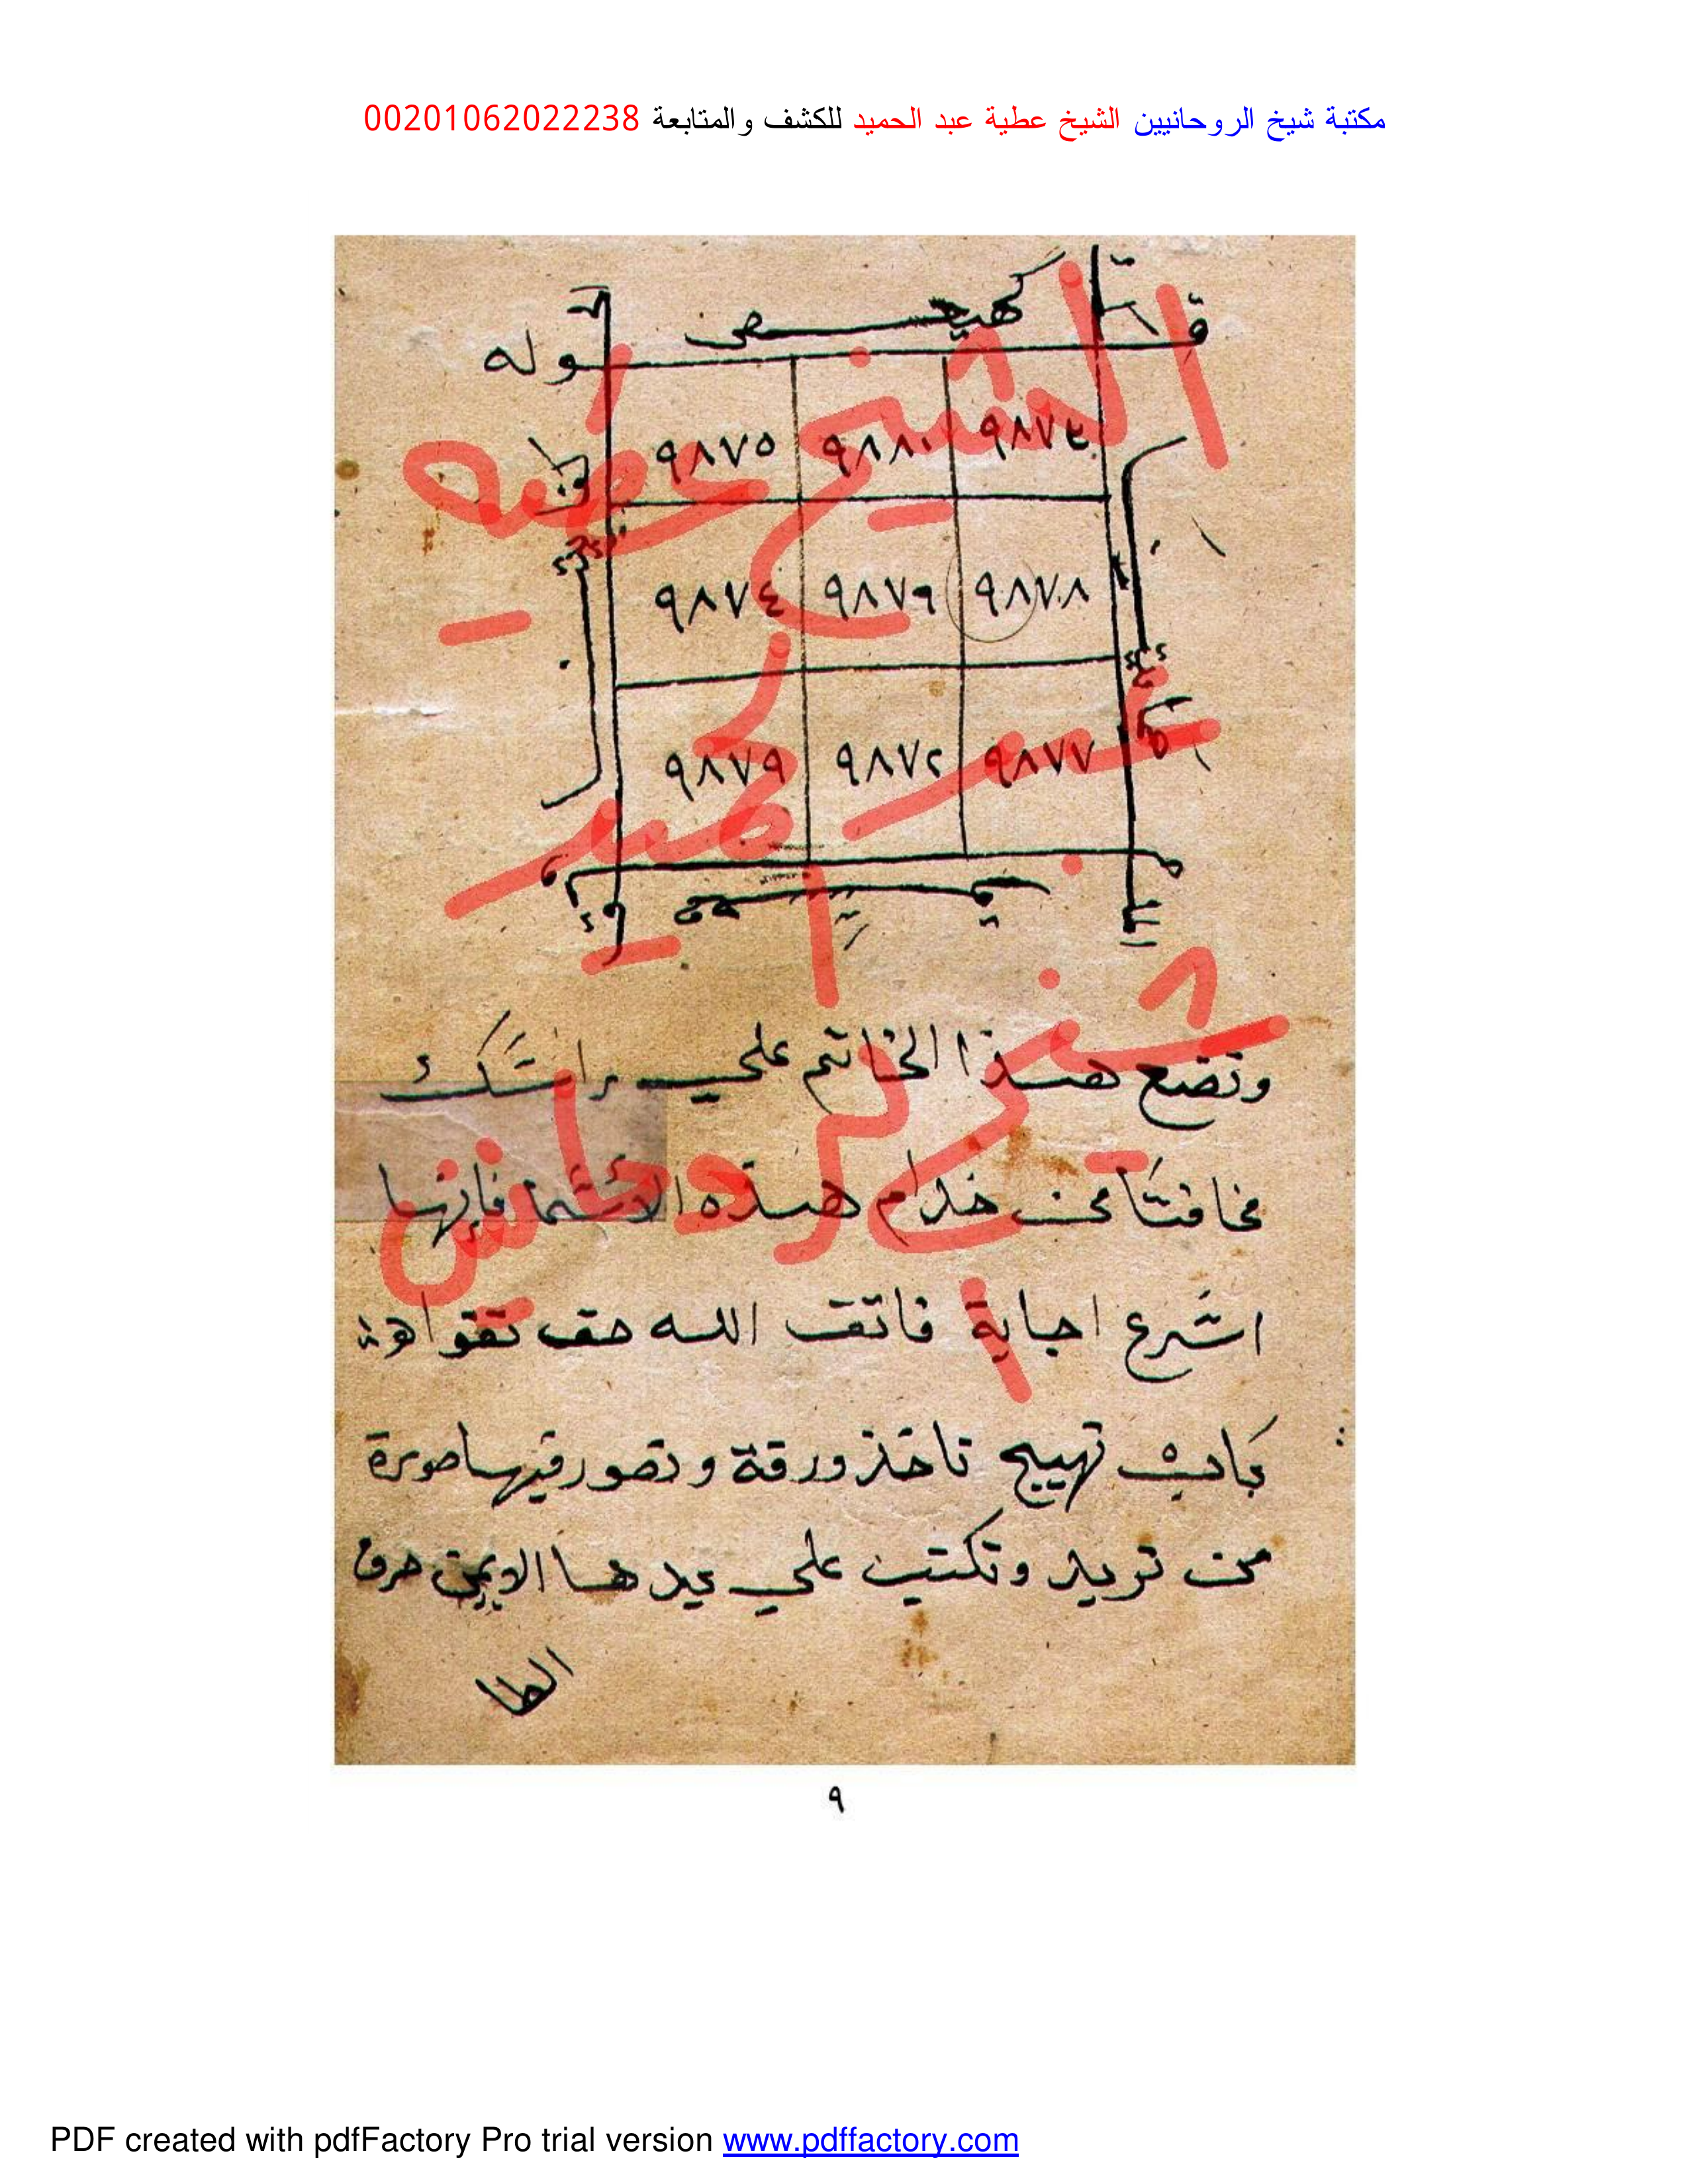 مكتبة شيخ الروحانيين الشيخ عطية عبد الحميد للكشف والمتابعة 00201062022238
كهيعص
قوله
٩٨٧٣ ٩٨٨٠ ٩٨٧٥
٩٨٧٨ ٩٨٧٦ ٩٨٧٤
٩٨٧٧ ٩٨٧٢ ٩٨٧٩
الشيخ عطيه
عبد الحميد
شيخ الروحانيين
وتضع هذا الخاتم على راسك
مخافتا من خدام هذه الاسما فانها
اسرع اجابة فاتق الله حق تقواهة
باب تهييج تاخذ ورقة وتصور فيها صورة
من تريد وتكتب علي يدها الايمن حرف
الطا
٩
PDF created with pdfFactory Pro trial version www.pdffactory.com